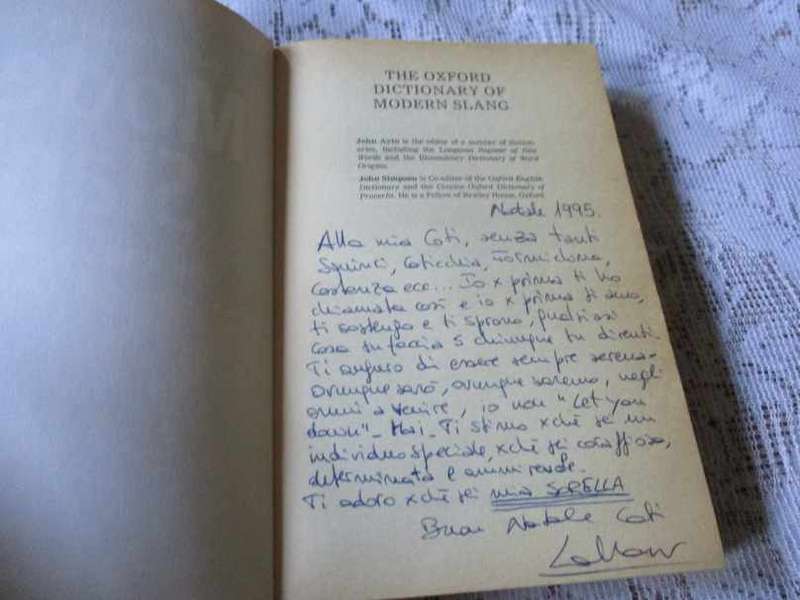 THE OXFORD
DICTIONARY OF
MODERN SLANG
John Ayto is the editor of a number of diction-
aries, including the Longman Register of New
Words and the Bloomsbury Dictionary of Word
Origins.
John Simpson is Co-editor of the Oxford English
Dictionary and the Concise Oxford Dictionary of
Proverbs. He is a Fellow of Kellogg College, Oxford
Natale 1995.
Alla mia Coti, senza tanti
Squinci, Coticchia, Formidona,
Costanza ecc... Io x prima ti ho
chiamata così e io x prima ti amo,
ti sostengo e ti sprono, qualsiasi
cosa tu faccia o chiunque tu diventi.
Ti auguro di essere sempre serena.
Ovunque sarò, ovunque saremo, negli
anni a venire, io non "Let you
down". Mai. Ti stimo xchè sei un
individuo speciale, xchè sei coraggiosa,
determinata e
Ti adoro xchè sei mia SORELLA
Buon Natale Coti